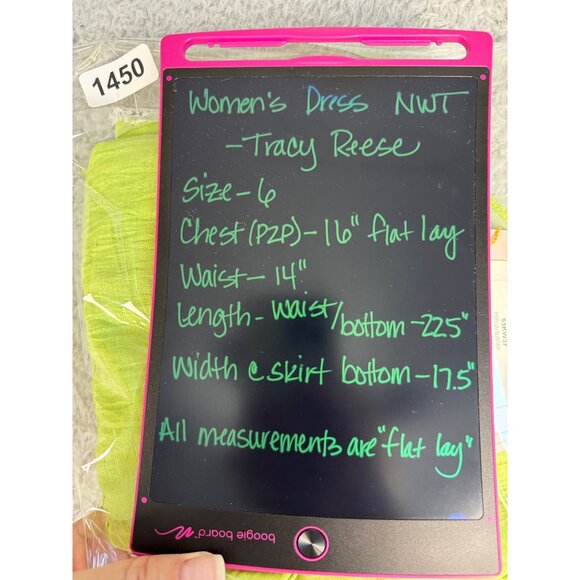 1450
Women's Dress NWT
- Tracy Reese
Size - 6
Chest (P2P) - 16" flat lay
Waist - 14"
Length - waist/bottom - 22.5"
Width @ skirt bottom - 17.5"
All measurements are "flat lay"
boogie board™